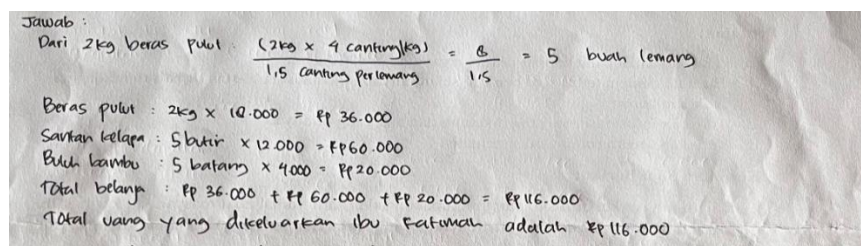 Jawab :
Dari 2kg beras pulut (2kg x 4 canting/kg) / 1,5 canting perlemang = 8 / 1,5 = 5 buah lemang
Beras pulut : 2kg x 18.000 = Rp 36.000
Santan kelapa : 5 butir x 12.000 = Rp 60.000
Buluh bambu : 5 batang x 4000 = Rp 20.000
Total belanja : Rp 36.000 + Rp 60.000 + Rp 20.000 = Rp 116.000
Total uang yang dikeluarkan ibu Fatimah adalah Rp 116.000